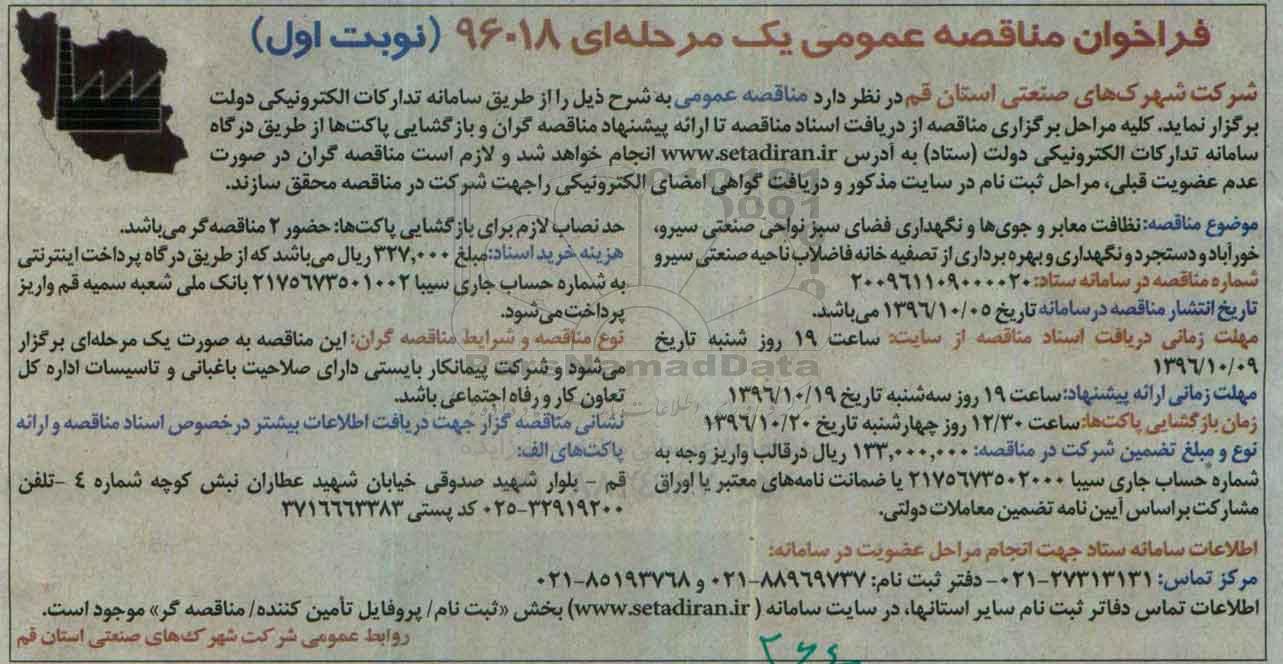 فراخوان مناقصه عمومی یک مرحله‌ای ۹۶۰۱۸ (نوبت اول)
شرکت شهرک‌های صنعتی استان قم در نظر دارد مناقصه عمومی به شرح ذیل را از طریق سامانه تدارکات الکترونیکی دولت
برگزار نماید. کلیه مراحل برگزاری مناقصه از دریافت اسناد مناقصه تا ارائه پیشنهاد مناقصه گران و بازگشایی پاکت‌ها از طریق درگاه
سامانه تدارکات الکترونیکی دولت (ستاد) به آدرس www.setadiran.ir انجام خواهد شد و لازم است مناقصه گران در صورت
عدم عضویت قبلی، مراحل ثبت نام در سایت مذکور و دریافت گواهی امضای الکترونیکی را جهت شرکت در مناقصه محقق سازند.
موضوع مناقصه: نظافت معابر و جوی‌ها و نگهداری فضای سبز نواحی صنعتی سیرو،
خورآباد و دستجرد و نگهداری و بهره برداری از تصفیه خانه فاضلاب ناحیه صنعتی سیرو
شماره مناقصه در سامانه ستاد: ۲۰۰۹۶۱۱۰۹۰۰۰۰۲۰
تاریخ انتشار مناقصه در سامانه تاریخ ۱۳۹۶/۱۰/۰۵ می‌باشد.
مهلت زمانی دریافت اسناد مناقصه از سایت: ساعت ۱۹ روز شنبه تاریخ
۱۳۹۶/۱۰/۰۹
مهلت زمانی ارائه پیشنهاد: ساعت ۱۹ روز سه‌شنبه تاریخ ۱۳۹۶/۱۰/۱۹
زمان بازگشایی پاکت‌ها: ساعت ۱۲/۳۰ روز چهارشنبه تاریخ ۱۳۹۶/۱۰/۲۰
نوع و مبلغ تضمین شرکت در مناقصه: ۱۳۳,۰۰۰,۰۰۰ ریال در قالب واریز وجه به
شماره حساب جاری سیبا ۲۱۷۵۶۷۳۵۰۲۰۰۰ یا ضمانت نامه‌های معتبر یا اوراق
مشارکت براساس آیین نامه تضمین معاملات دولتی.
حد نصاب لازم برای بازگشایی پاکت‌ها: حضور ۲ مناقصه‌گر می‌باشد.
هزینه خرید اسناد: مبلغ ۳۲۷,۰۰۰ ریال می‌باشد که از طریق درگاه پرداخت اینترنتی
به شماره حساب جاری سیبا ۲۱۷۵۶۷۳۵۰۱۰۰۲ بانک ملی شعبه سمیه قم واریز
پرداخت می‌شود.
نوع مناقصه و شرایط مناقصه گران: این مناقصه به صورت یک مرحله‌ای برگزار
می‌شود و شرکت پیمانکار بایستی دارای صلاحیت باغبانی و تاسیسات اداره کل
تعاون کار و رفاه اجتماعی باشد.
نشانی مناقصه گزار جهت دریافت اطلاعات بیشتر درخصوص اسناد مناقصه و ارائه
پاکت‌های الف:
قم - بلوار شهید صدوقی خیابان شهید عطاران نبش کوچه شماره ٤ -تلفن
۰۲۵-۳۲۹۱۹۲۰۰ کد پستی ۳۷۱۶۶۶۳۳۸۳
اطلاعات سامانه ستاد جهت انجام مراحل عضویت در سامانه:
مرکز تماس: ۰۲۱-۲۷۳۱۳۱۳۱- دفتر ثبت نام: ۰۲۱-۸۸۹۶۹۷۳۷ و ۰۲۱-۸۵۱۹۳۷۶۸
اطلاعات تماس دفاتر ثبت نام سایر استانها، در سایت سامانه (www.setadiran.ir) بخش «ثبت نام/ پروفایل تأمین کننده/ مناقصه گر» موجود است.
روابط عمومی شرکت شهرک‌های صنعتی استان قم
ParsNamadData